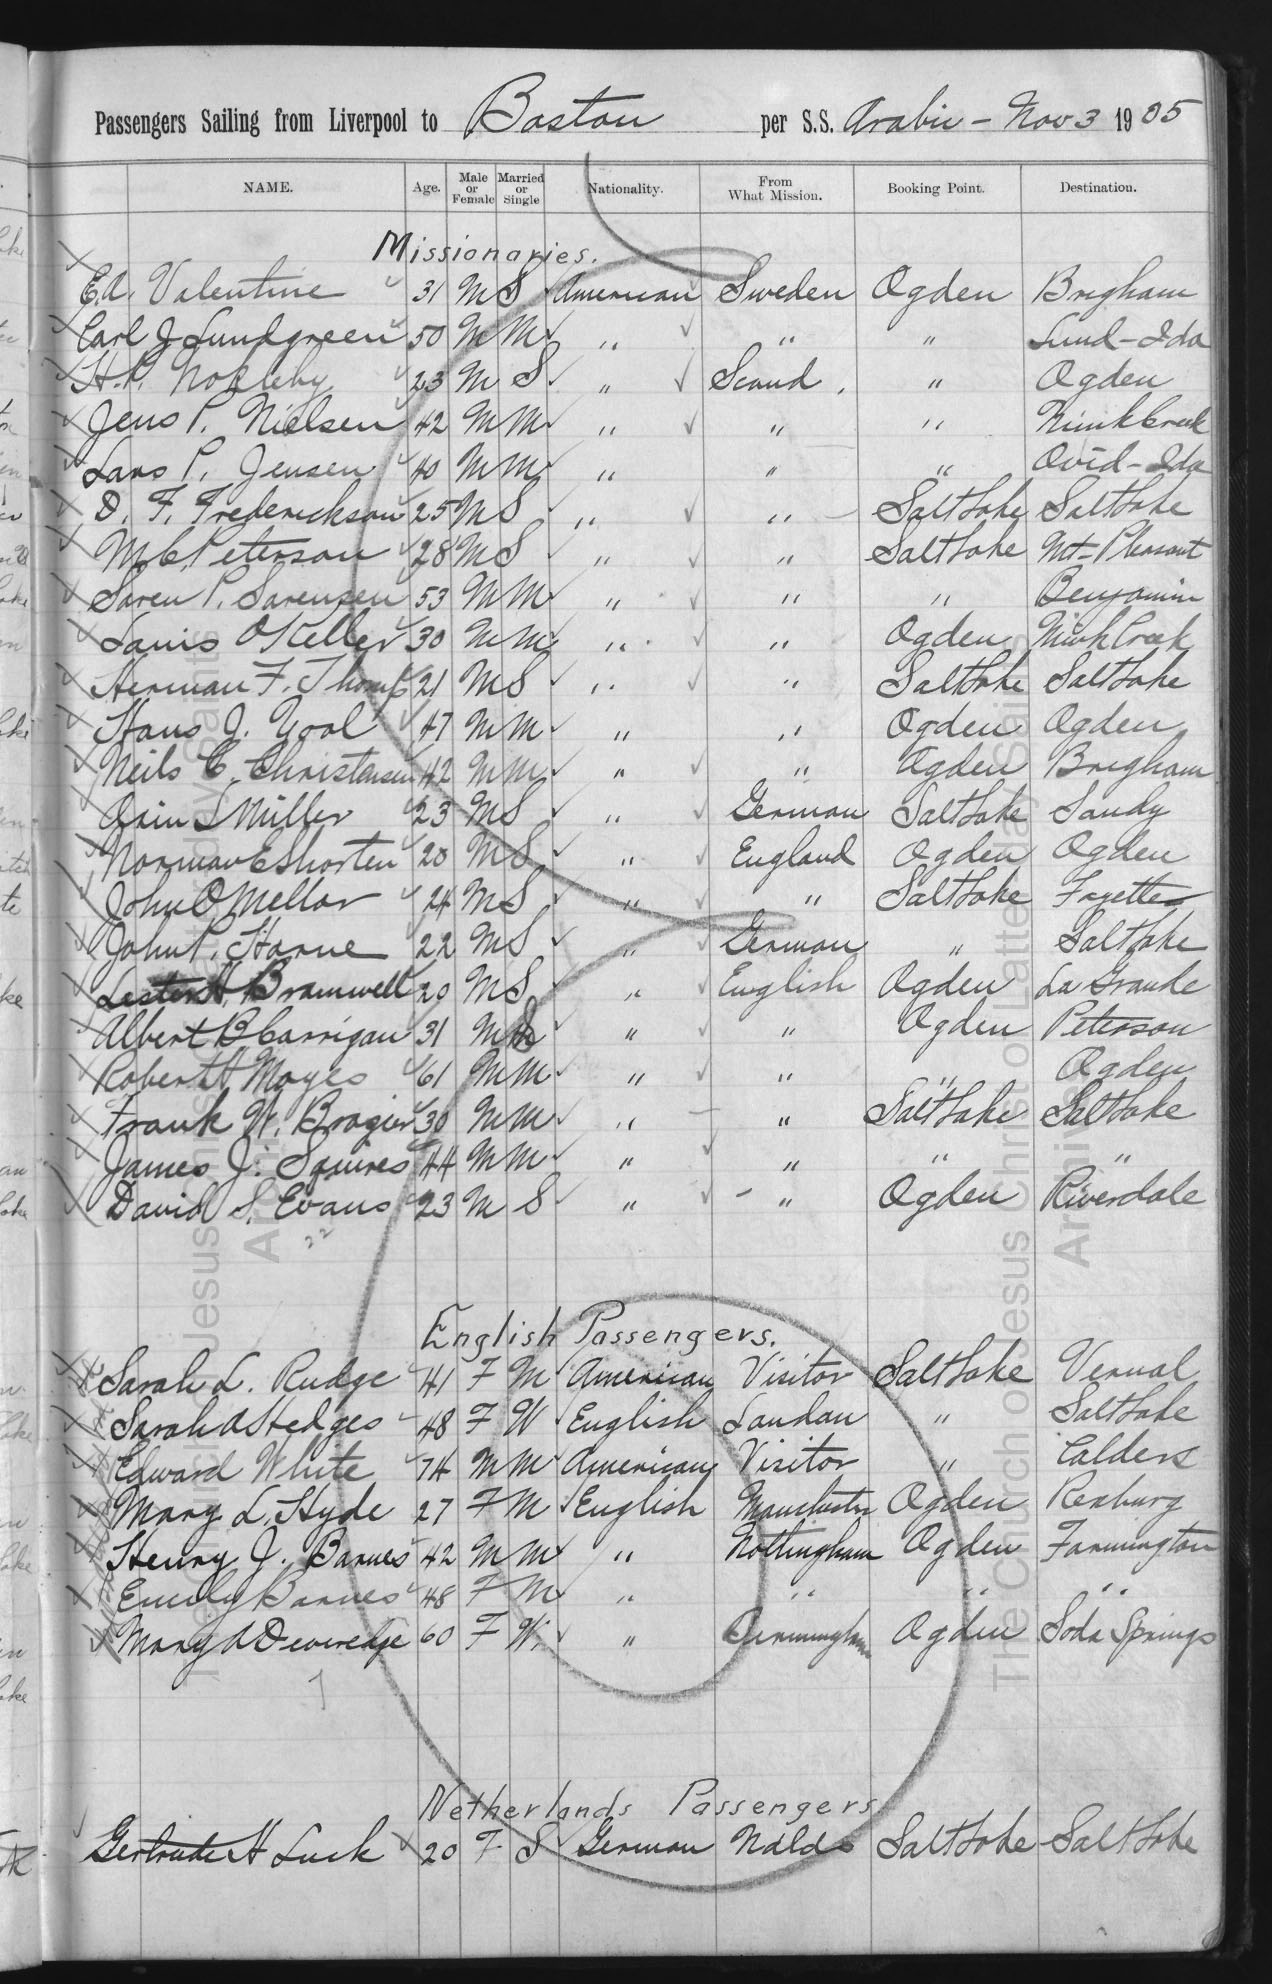 Passengers Sailing from Liverpool to Boston per S.S. Arabic - Nov 3 1905
NAME. Age. Male or Female Married or Single Nationality. From What Mission. Booking Point. Destination.
Missionaries.
E.A. Valentine 31 M S American Sweden Ogden Brigham
Carl J Lundgreen 50 M M " " " Lund-Ida
H.P. Nokleby 23 M S " Scand. " Ogden
Jens P. Nielsen 42 M M " " "
Lars P. Jensen 40 M M " " " Ovid-Ida
D. F. Frederickson 25 M S " " Salt Lake Salt Lake
M.C. Peterson 28 M S " " Salt Lake Mt-Pleasant
Soren P. Sorensen 53 M M " " " Benjamin
Louis O Keller 30 M M " " Ogden Mink Creek
Herman F. 21 M S " " Salt Lake Salt Lake
Hans J. 47 M M " " Ogden Ogden
Neils C. Christensen 42 M M " " Ogden Brigham
S Miller 23 M S " German Salt Lake Sandy
Norman E Shorten 20 M S " England Ogden Ogden
John O Mellor 24 M S " " Salt Lake Fayette
John P. Horne 22 M S " German " Salt Lake
Lester H. Bramwell 20 M S " English Ogden La Grande
Albert B Carrigan 31 M " " Ogden Peterson
Robert H Moyes 61 M M " " " Ogden
Frank W. Brazier 30 M M " " Salt Lake Salt Lake
James J. Squires 44 M M " " " "
David S. Evans 23 M S " - " Ogden Riverdale
22
English Passengers.
Sarah L. Rudge 41 F M American Visitor Salt Lake Vernal
Sarah A Hedges 48 F W English London " Salt Lake
Edward White 74 M M American Visitor " Calders
Mary L. Hyde 27 F M English Manchester Ogden Rexburg
Henry J. Barnes 42 M M " Nottingham Ogden Farmington
Emily Barnes 48 F M " " " "
Mary A Deveredge 60 F W. " Birmingham Ogden Soda Springs
7
Netherlands Passengers
Gertrude H Luck 20 F S German Nalds Salt Lake Salt Lake
The Church of Jesus Christ of Latter-day Saints
Archives